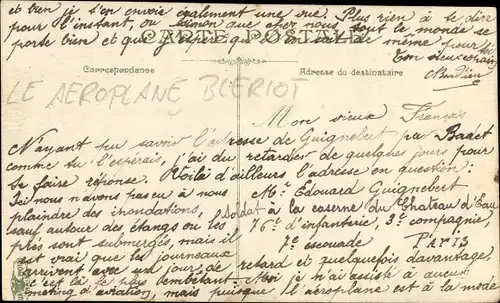 et bien je t'en envoie également une vue. Plus rien à te dire
pour l'instant, ou sinon que chez nous tout le monde se
porte bien et que j'espère qu'il en soit de même pour toi.
CARTE POSTALE
Ton vieux copain
Correspondance
Adresse du destinataire
LE AEROPLANE BLERIOT
Mon vieux François
N'ayant pu savoir l'adresse de Guignebert par Badet
comme tu l'espérais, j'ai du retarder de quelques jours pour
te faire réponse. Voilà d'ailleurs l'adresse en question :
Mr Edouard Guignebert
soldat à la caserne du Château d'Eau
76e d'infanterie, 3e compagnie,
7e escouade PARIS
Ici nous n'avons pas eu à nous
plaindre des inondations,
sauf autour des étangs ou les
prés sont submergés, mais il
est vrai que les journeaux
arrivent avec un jour de retard et quelquefois davantage,
c'est là le plus embêtant. Moi je n'ai assisté à aucun
meeting d'aviation, mais puisque l'aéroplane est à la mode